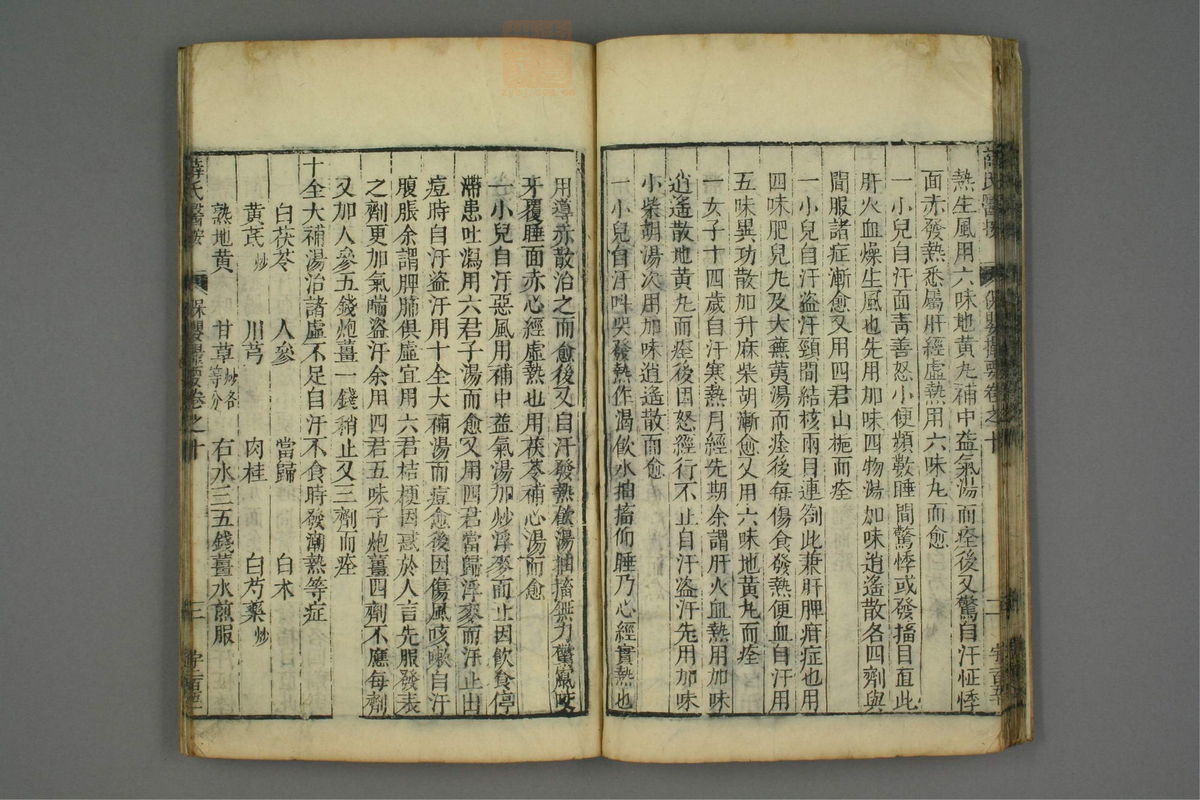 熱生風用六味地黃丸補中益氣湯而痊後又驚自汗怔悸
面赤發熱悉屬肝經虛熱用六味丸而愈
一小兒自汗面青善怒小便頻數睡間驚悸或發搐目直此
肝火血燥生風也先用加味四物湯加味逍遙散各四劑與
間服諸症漸愈又用四君山梔而痊
一小兒自汗盜汗頸間結核兩目連劄此兼肝脾疳症也用
四味肥兒丸及大蕪荑湯而痊後每傷食發熱便血自汗用
五味異功散加升麻柴胡漸愈又用六味地黃丸而痊
一女子十四歲自汗寒熱月經先期余謂肝火血熱用加味
逍遙散地黃丸而痊後因怒經行不止自汗盜汗先用加味
小柴胡湯次用加味逍遙散而愈
一小兒自汗呌哭發熱作渴飲水抽搐仰睡乃心經實熱也
用導赤散治之而愈後又自汗發熱飲湯抽搐無力驚竄咬
牙覆睡面赤心經虛熱也用茯苓補心湯而愈
一小兒自汗惡風用補中益氣湯加炒浮麥而止因飲食停
滯患吐瀉用六君子湯而愈又用四君當歸浮麥而汗止出
痘時自汗盜汗用十全大補湯而痘愈後因傷風咳嗽自汗
腹脹余謂脾肺俱虛宜用六君桔梗因惑於人言先服發表
之劑更加氣喘盜汗余用四君五味子炮薑四劑不應每劑
又加人參五錢炮薑一錢稍止又三劑而痊
十全大補湯治諸虛不足自汗不食時發潮熱等症
白茯苓 人參 當歸 白术
黃芪炒 川芎 肉桂 白芍藥炒
熟地黃 甘草炒各等分 右水三五錢薑水煎服
薛氏醫按 保嬰撮要卷之十 三